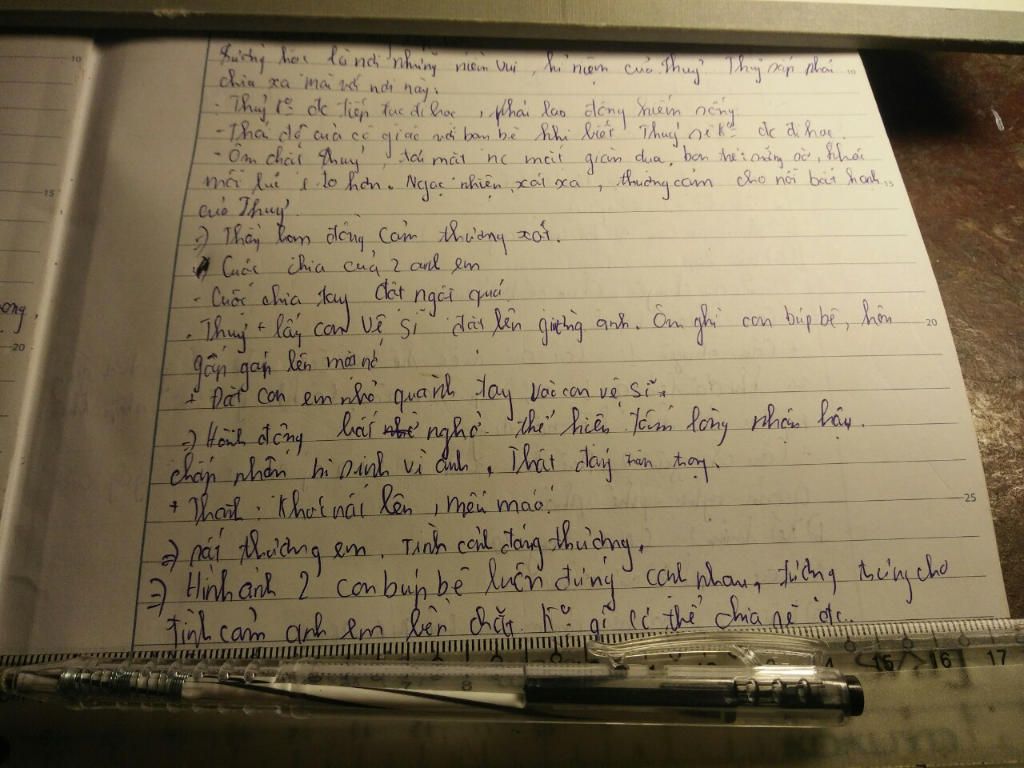 trường học là nơi những niềm vui, kỉ niệm của Thuỷ. Thuỷ sắp phải
chia xa mãi với nơi này.
- Thuỷ k° đc tiếp tục đi học, phải lao động kiếm sống
- Thái độ của cô giáo với bạn bè khi biết Thuỷ sẽ k° đc đi học.
- Ôm chặt Thuỷ, tái mặt nc mắt giàn dụa, bạn thì sững sờ, khóc
mỗi lúc 1 to hơn. Ngạc nhiên, xót xa, thương cảm cho nỗi bất hạnh
của Thuỷ.
=> Thầy bạn đồng cảm thương xót.
Cuộc chia của 2 anh em
- Cuộc chia tay đột ngột quá
- Thuỷ + lấy con vệ sĩ đặt lên giường anh. Ôm ghì con búp bê, hôn
gấp gáp lên mặt nó
+ Đặt con em nhỏ quành tay vào con vệ sĩ.
=> Hành động bất ngờ. thể hiện tấm lòng nhân hậu.
chấp nhận hi sinh vì anh. Thật đáng trân trọng.
+ Thành: Khóc nấc lên, mếu máo.
=> rất thương em. Tình cảnh đáng thương.
=> Hình ảnh 2 con búp bê luôn đứng cạnh nhau, tượng trưng cho
tình cảm anh em bền chặt. K° gì có thể chia rẽ đc.
10
15
20
20
25
15 16 17